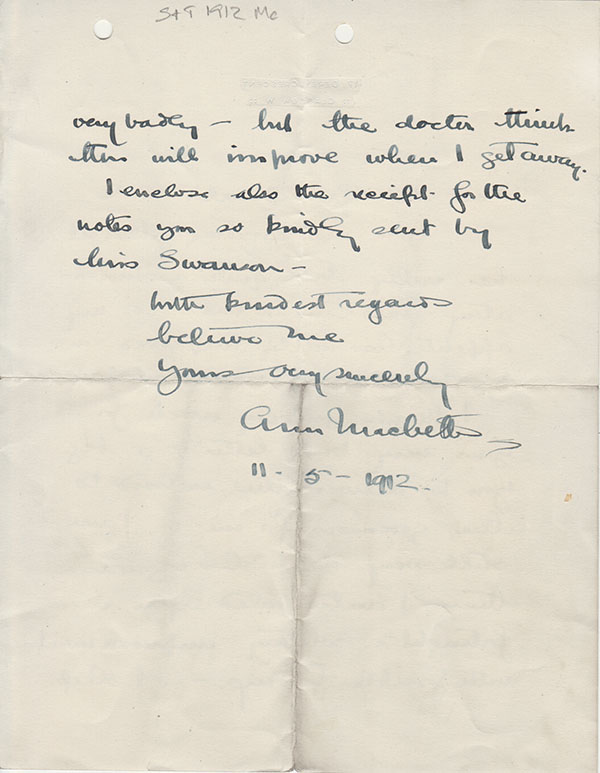 S+9 1912 Mc
very badly – but the doctor think
this will improve when I get away.
I enclose also the receipt for the
notes you so kindly sent by
Miss Swanson –
With kindest regards
believe me
Yours very sincerely
Ann Macbeth
11 - 5 - 1912.